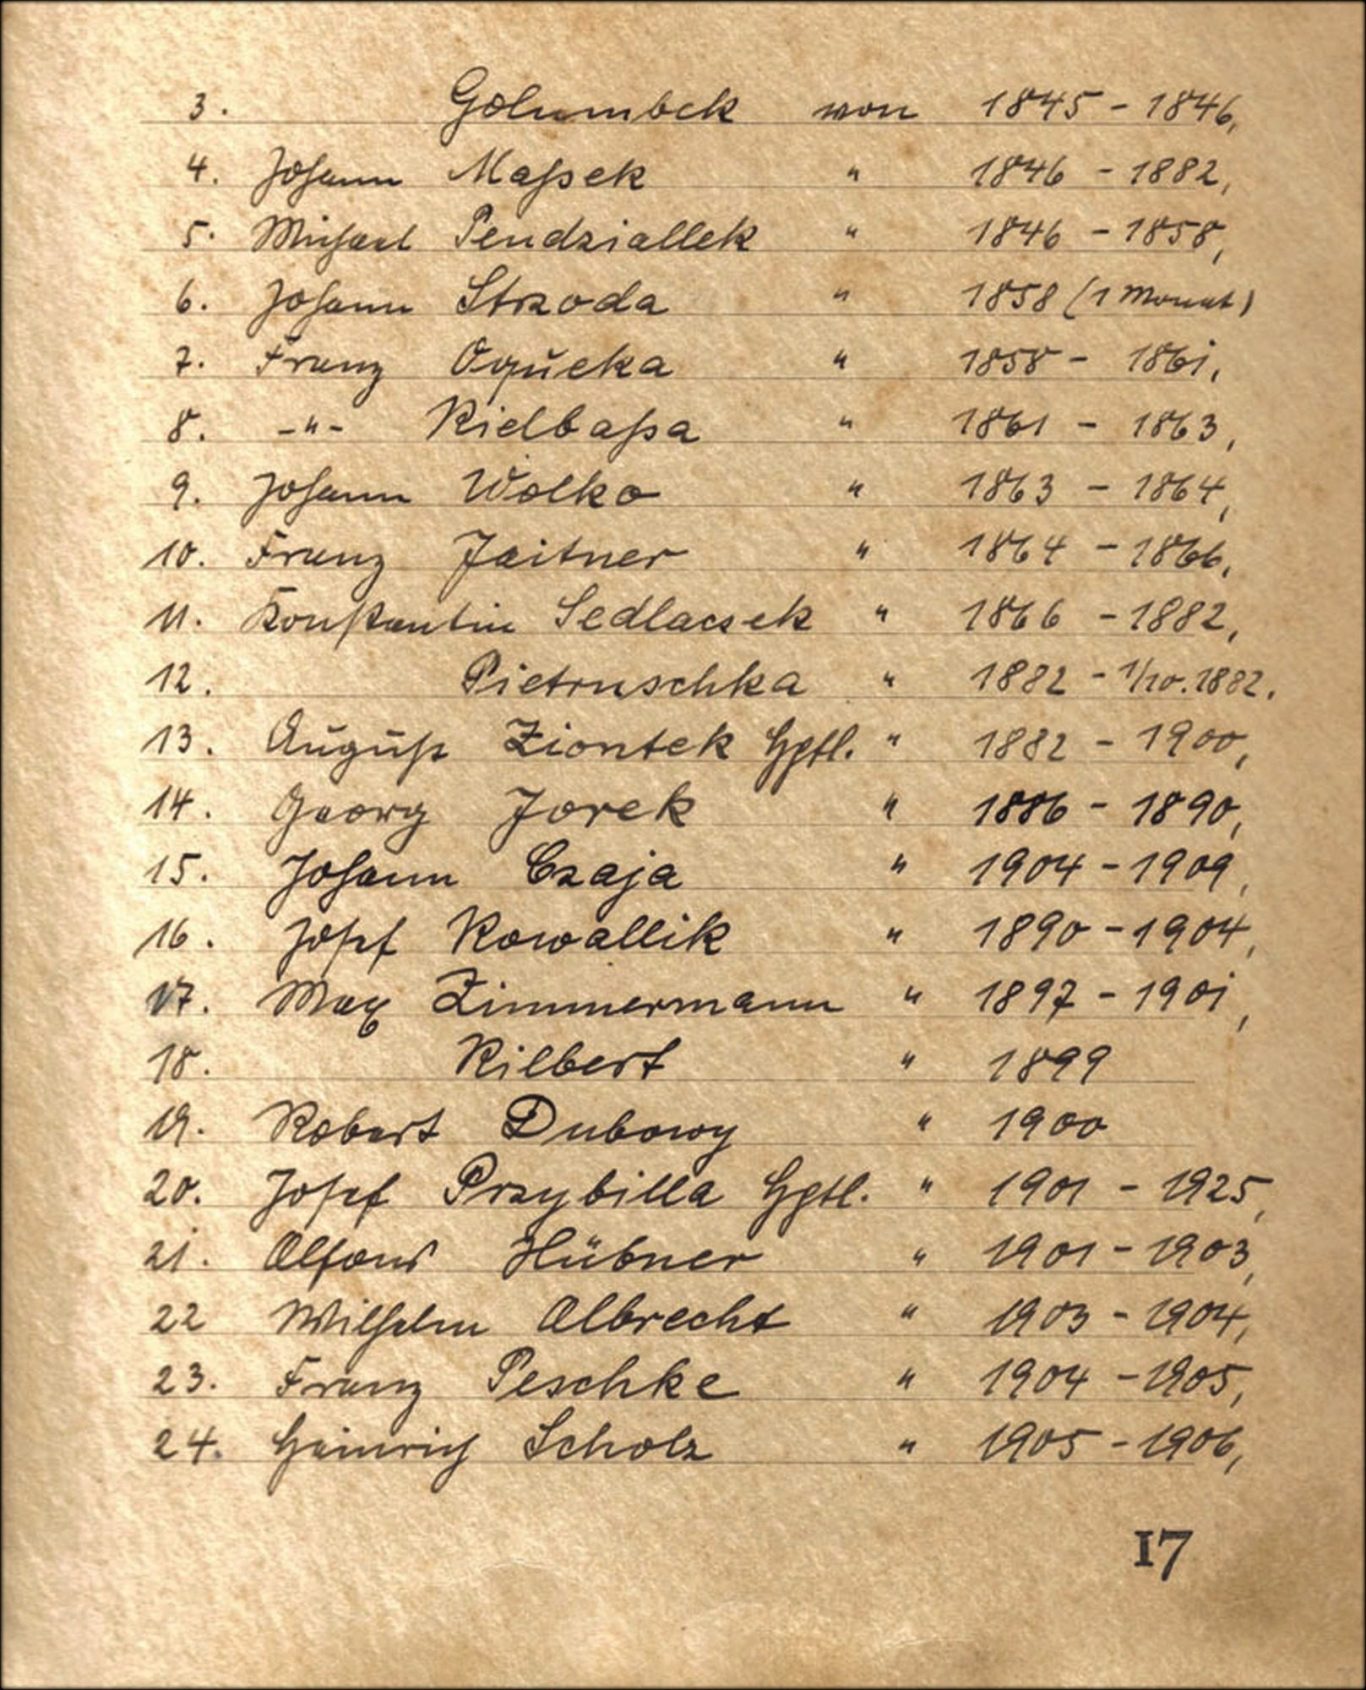 3. Golumbek von 1845 - 1846,
4. Johann Maßek " 1846 - 1882,
5. Michael Pendziallek " 1846 - 1858,
6. Johann Strzoda " 1858 (1 Monat)
7. Franz Oqueka " 1858 - 1861,
8. -"- Kielbaßa " 1861 - 1863,
9. Johann Wolko " 1863 - 1864,
10. Franz Jaitner " 1864 - 1866,
11. Konstantin Sedlaczek " 1866 - 1882,
12. Pietruschka " 1882 - 1/10. 1882.
13. August Ziontek Hptl. " 1882 - 1900,
14. Georg Jorek " 1886 - 1890,
15. Johann Czaja " 1904 - 1909,
16. Josef Kowallik " 1890 - 1904,
17. Max Zimmermann " 1897 - 1901,
18. Kilbert " 1899
19. Robert Dubowy " 1900
20. Josef Przybilla Hptl. " 1901 - 1925,
21. Alfons Hübner " 1901 - 1903,
22 Wilhelm Albrecht " 1903 - 1904,
23. Franz Peschke " 1904 - 1905,
24. Heinrich Scholz " 1905 - 1906,
17